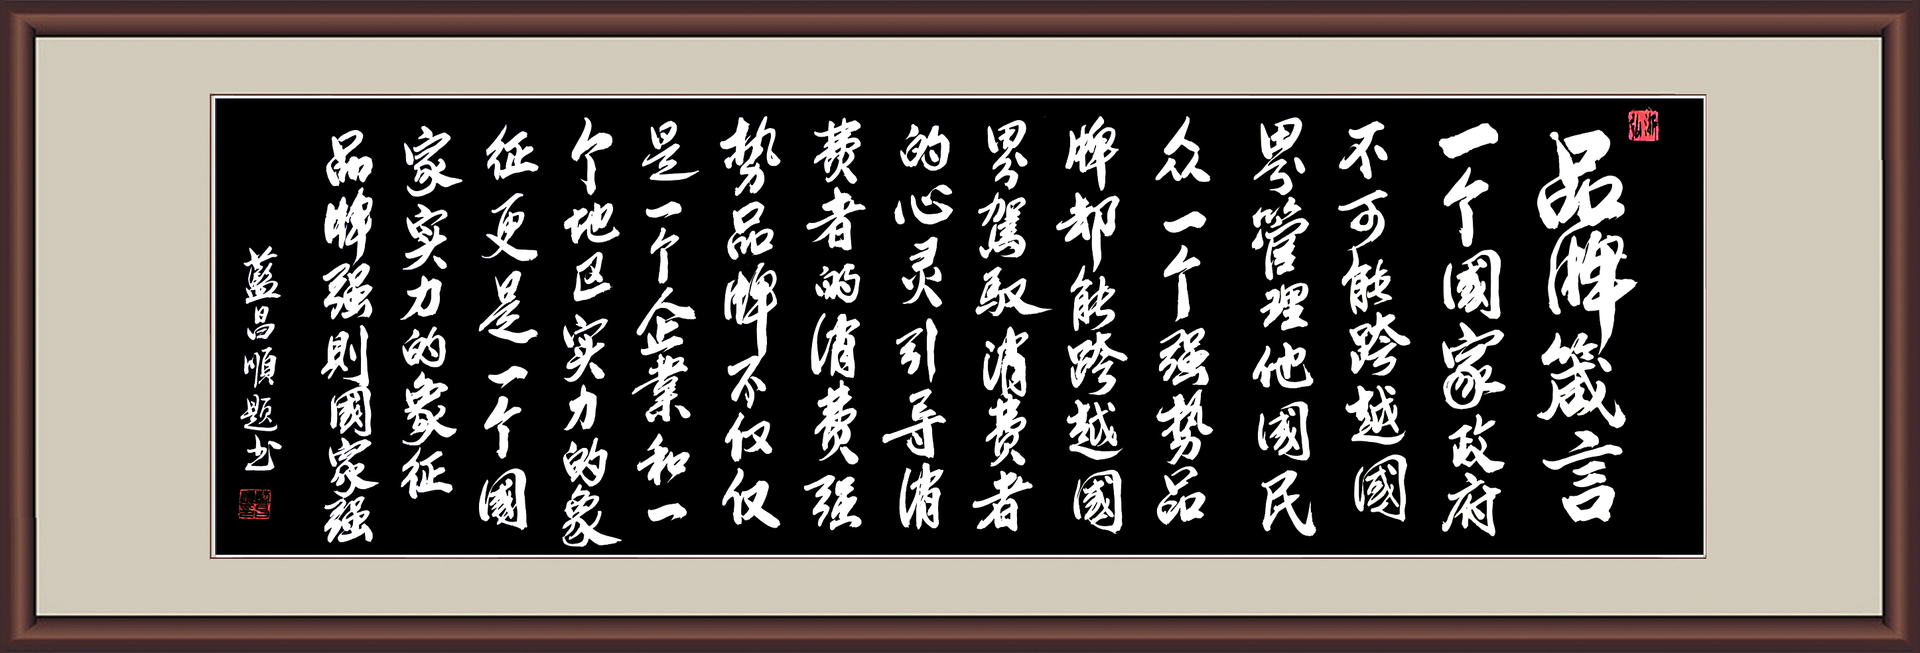 品牌箴言
一个國家政府
不可能跨越國
界管理他國民
众一个强势品
牌却能跨越國
界駕驭消费者
的心灵引导消
费者的消费强
势品牌不仅仅
是一个企業和一
个地区实力的象
征更是一个國
家实力的象征
品牌强则國家强
藍昌順题书